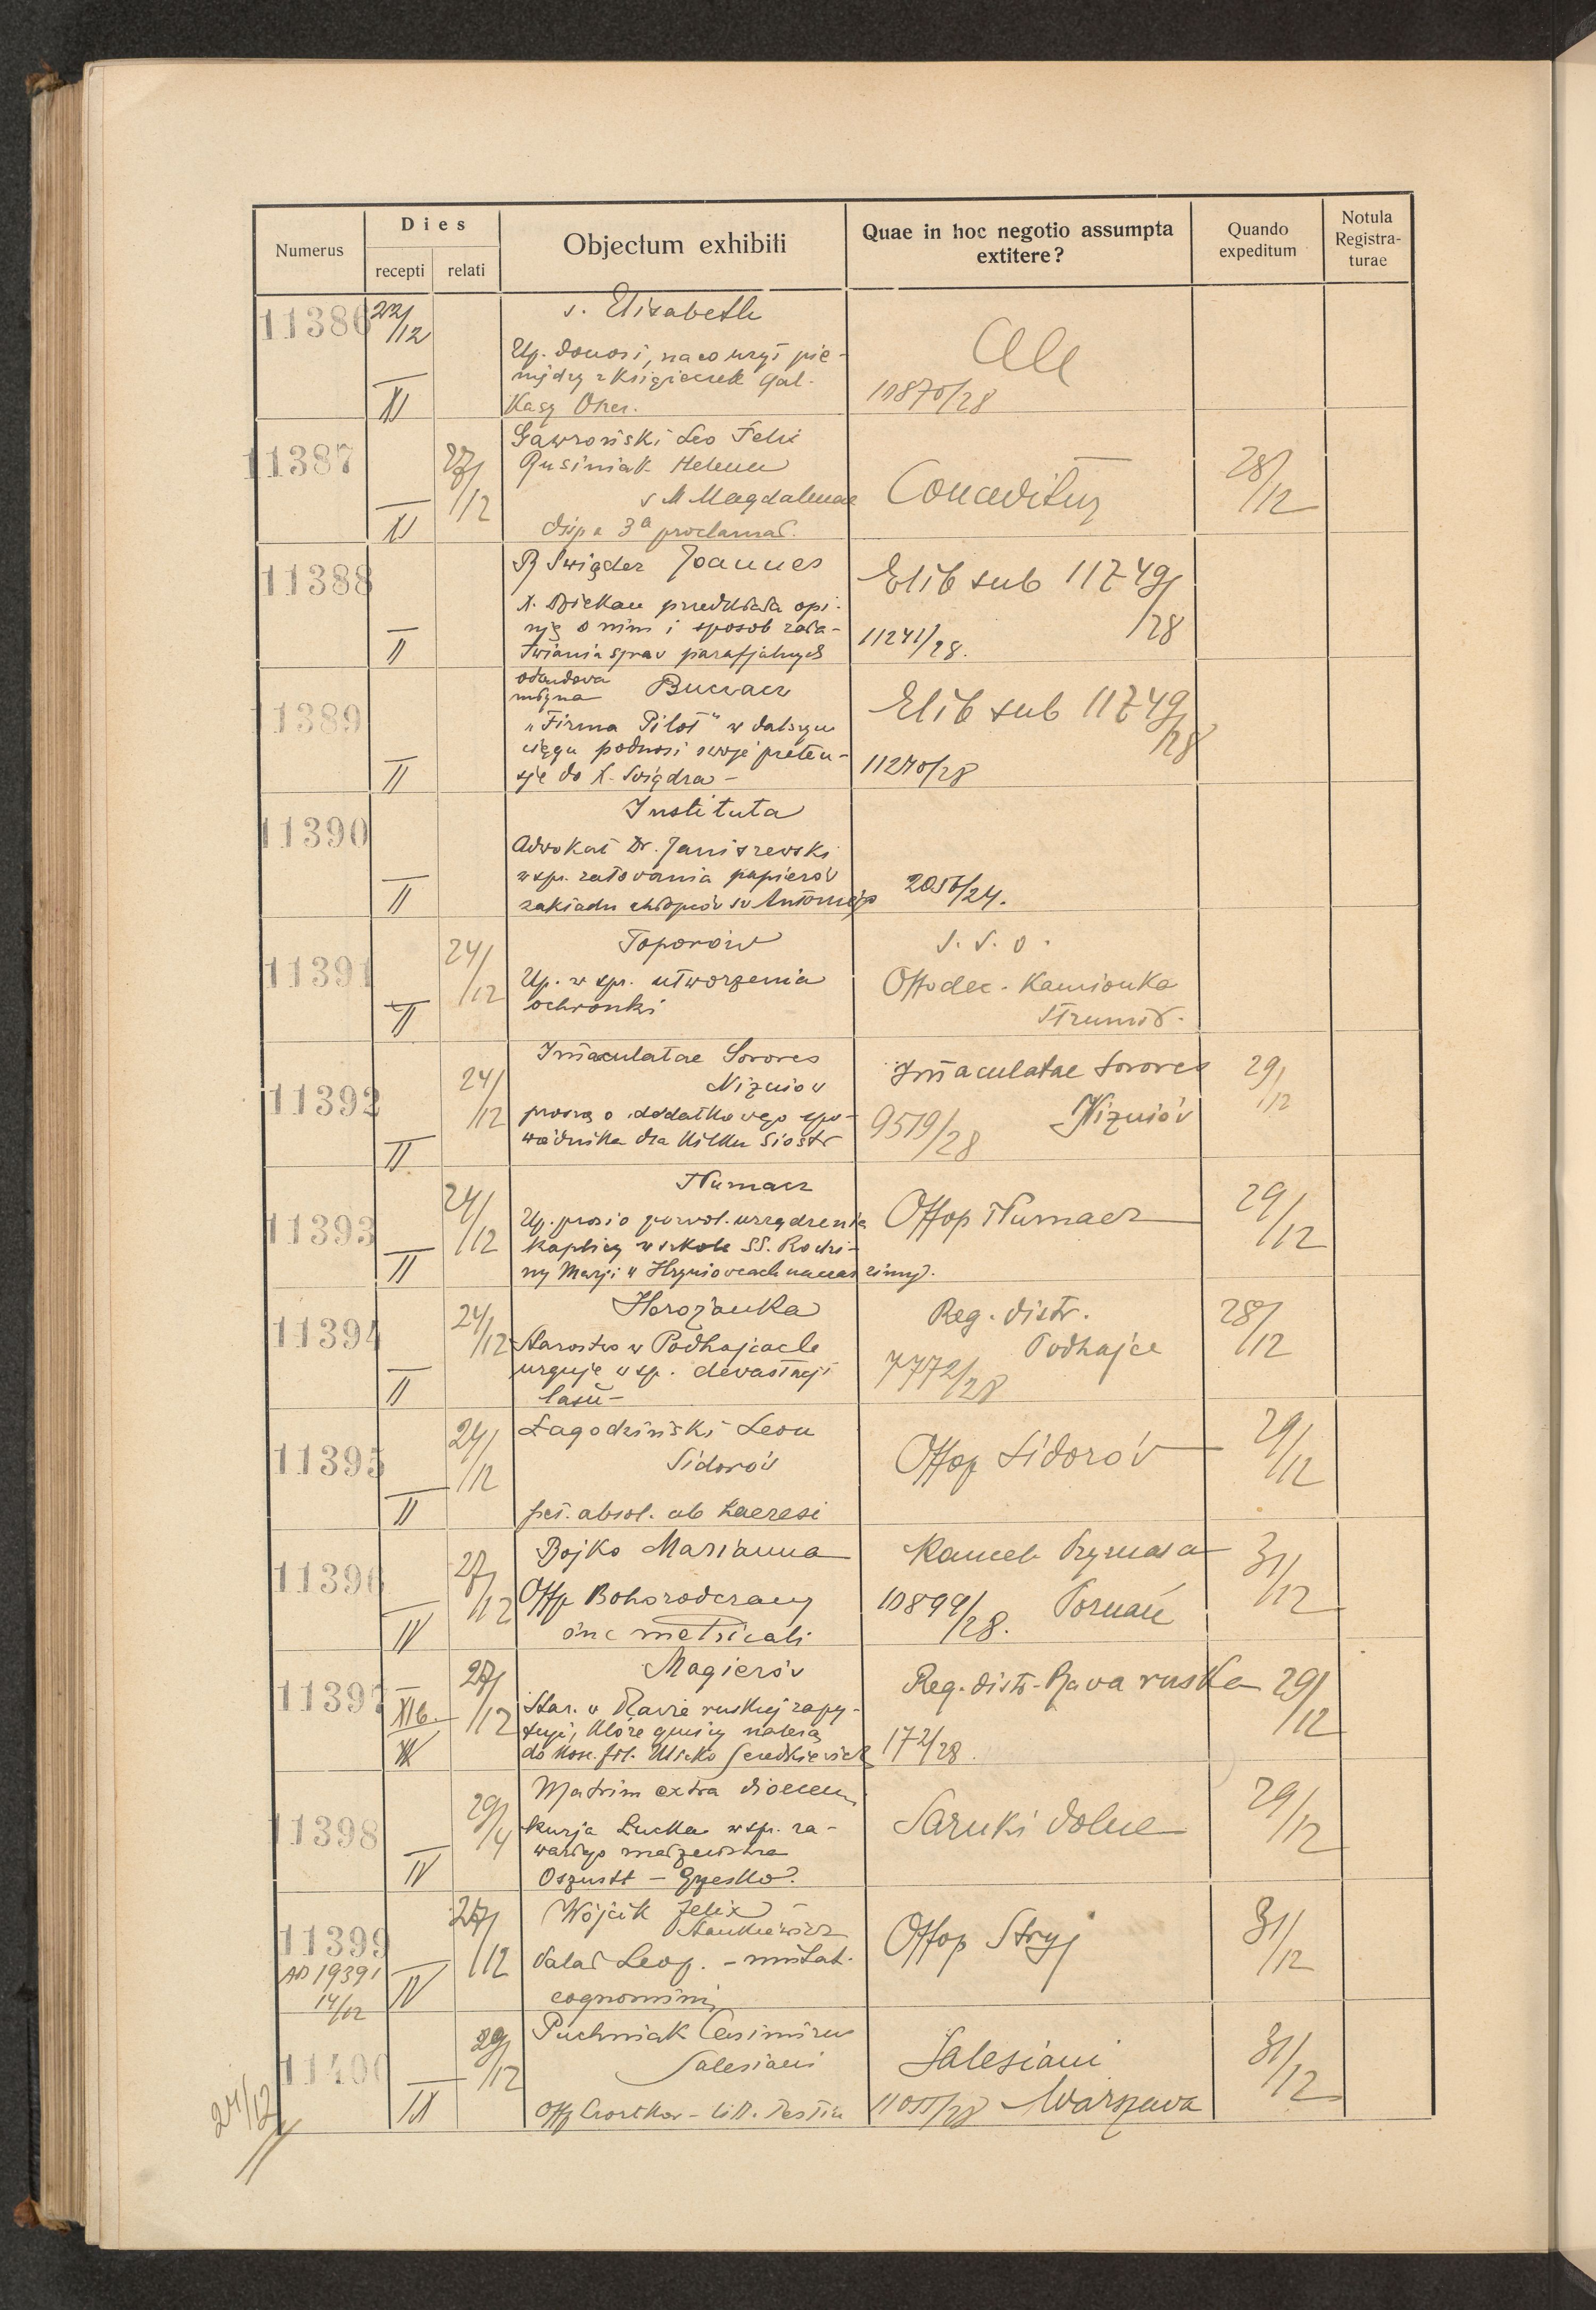 Numerus
Dies
recepti
relati
Objectum exhibiti
Quae in hoc negotio assumpta
extitere?
Quando
expeditum
Notula
Registra-
turae
11386
22/12
XI
s. Elisabeth
Up. donosi, na co użył pie-
niędzy z książeczek Gal.
Kasy Oszcz.
10870/28
11387
27/12
XI
Gawroński Leo Felix
Gusiniak Helena
s M Magdalenae
disp a 3ª proclamat.
Conceditur
28/12
11388
II
Świąder Joannes
X. Dziekan przedkłada opi-
nję o nim i sposób zała-
twiania spraw parafjalnych
Elib sub 11249/28
11241/28.
11389
II
odbudowa
młyna
Buczacz
"Firma Pilot" w dalszym
ciągu podnosi swoje preten-
sje do X. Świądra -
Elib sub 11249/28
11240/28
11390
II
Instituta
Adwokat Dr. Janiszewski
w spr. zatowania papierów
zakładu chłopców św Antoniego
2056/24.
11391
24/12
II
Toporów
Up. w spr. utworzenia
ochronki
S. S. O.
Offo dec. Kamionka
Strumił.
11392
24/12
II
Immaculatae Sorores
Niżniów
proszą o dodatkowego spo-
wiednika dla kilku Sióstr
Immaculatae Sorores
Niżniów
9519/28
29/12
11393
24/12
II
Tłumacz
Up. prosi o pozwol. urządzenia
kaplicy w szkole SS. Rodzi-
ny Marji w Hryniowcach na czas zimy.
Offop Tłumacz
29/12
11394
24/12
II
Horożanka
Starostwo w Podhajcach
urguje w sp. dewastacji
lasu -
Reg. distr.
Podhajce
7772/28
28/12
11395
24/12
II
Łagodziński Leon
Sidorów
pet. absol. ab haeresi
Offop Sidorów
29/12
11396
27/12
IV
Bojko Marianna
Offp Bohorodczany
in c metricali
Kancel. Prymasa
Poznań
10899/28.
31/12
11397
XIb.
27/12
Magierów
Star. w Rawie ruskiej zapy-
tuje, które gminy należą
do kośc. fil. Ulicko Seredkiewicz
Reg. distr. Rawa ruska
172/28
29/12
11398
29/4
IV
Matrim extra dioeces.
Kurja Łucka w spr. za-
wartego małżeństwa
Oszustt - Gresko.
Sarnki dolne
29/12
11399
AD 19391
14/12
27/12
IV
Wójcik Felix
Stankiewicz
Palat Leop. - mutat.
cognominis
Offop Stryj
31/12
11400
29/12
IX
Puchniak Casimirus
Salesiani
Offp Czortków - litt. testim
Salesiani
Warszawa
11055/28
31/12
24/12